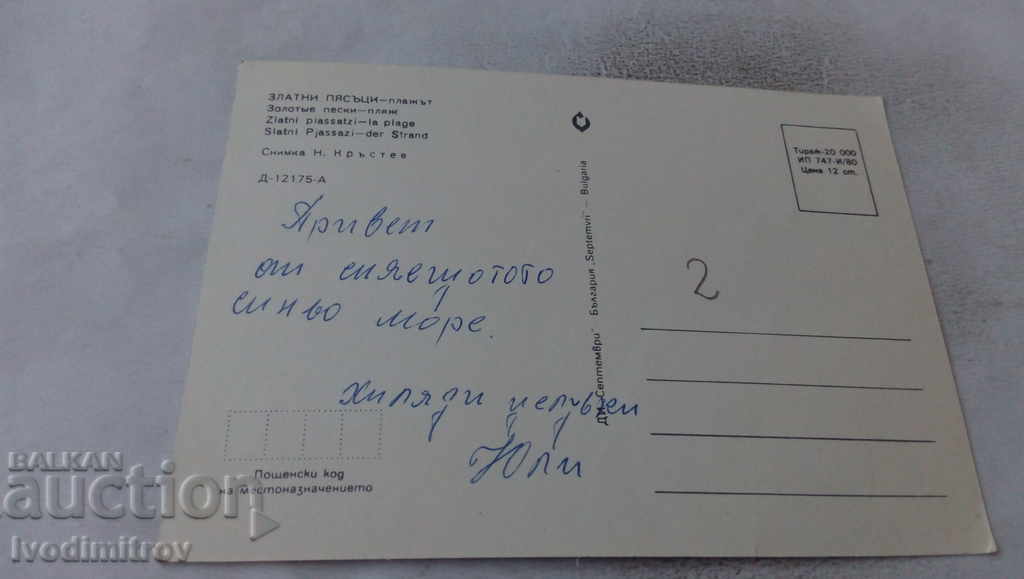 ЗЛАТНИ ПЯСЪЦИ—плажът
Золотые пески—пляж
Zlatni piassatzi—la plage
Slatni Pjassazi—der Strand
Снимка Н. Кръстев
Д-12175-А
Привет
от
синьо море.
хиляди целувки
Юли
Пощенски код
на местоназначението
ДИ „Септември" България „Septemvri" — Bulgaria
Тираж-20 000
ИП 747-И/80
Цена 12 ст.
2
BALKAN
auction
Ivodimitrov